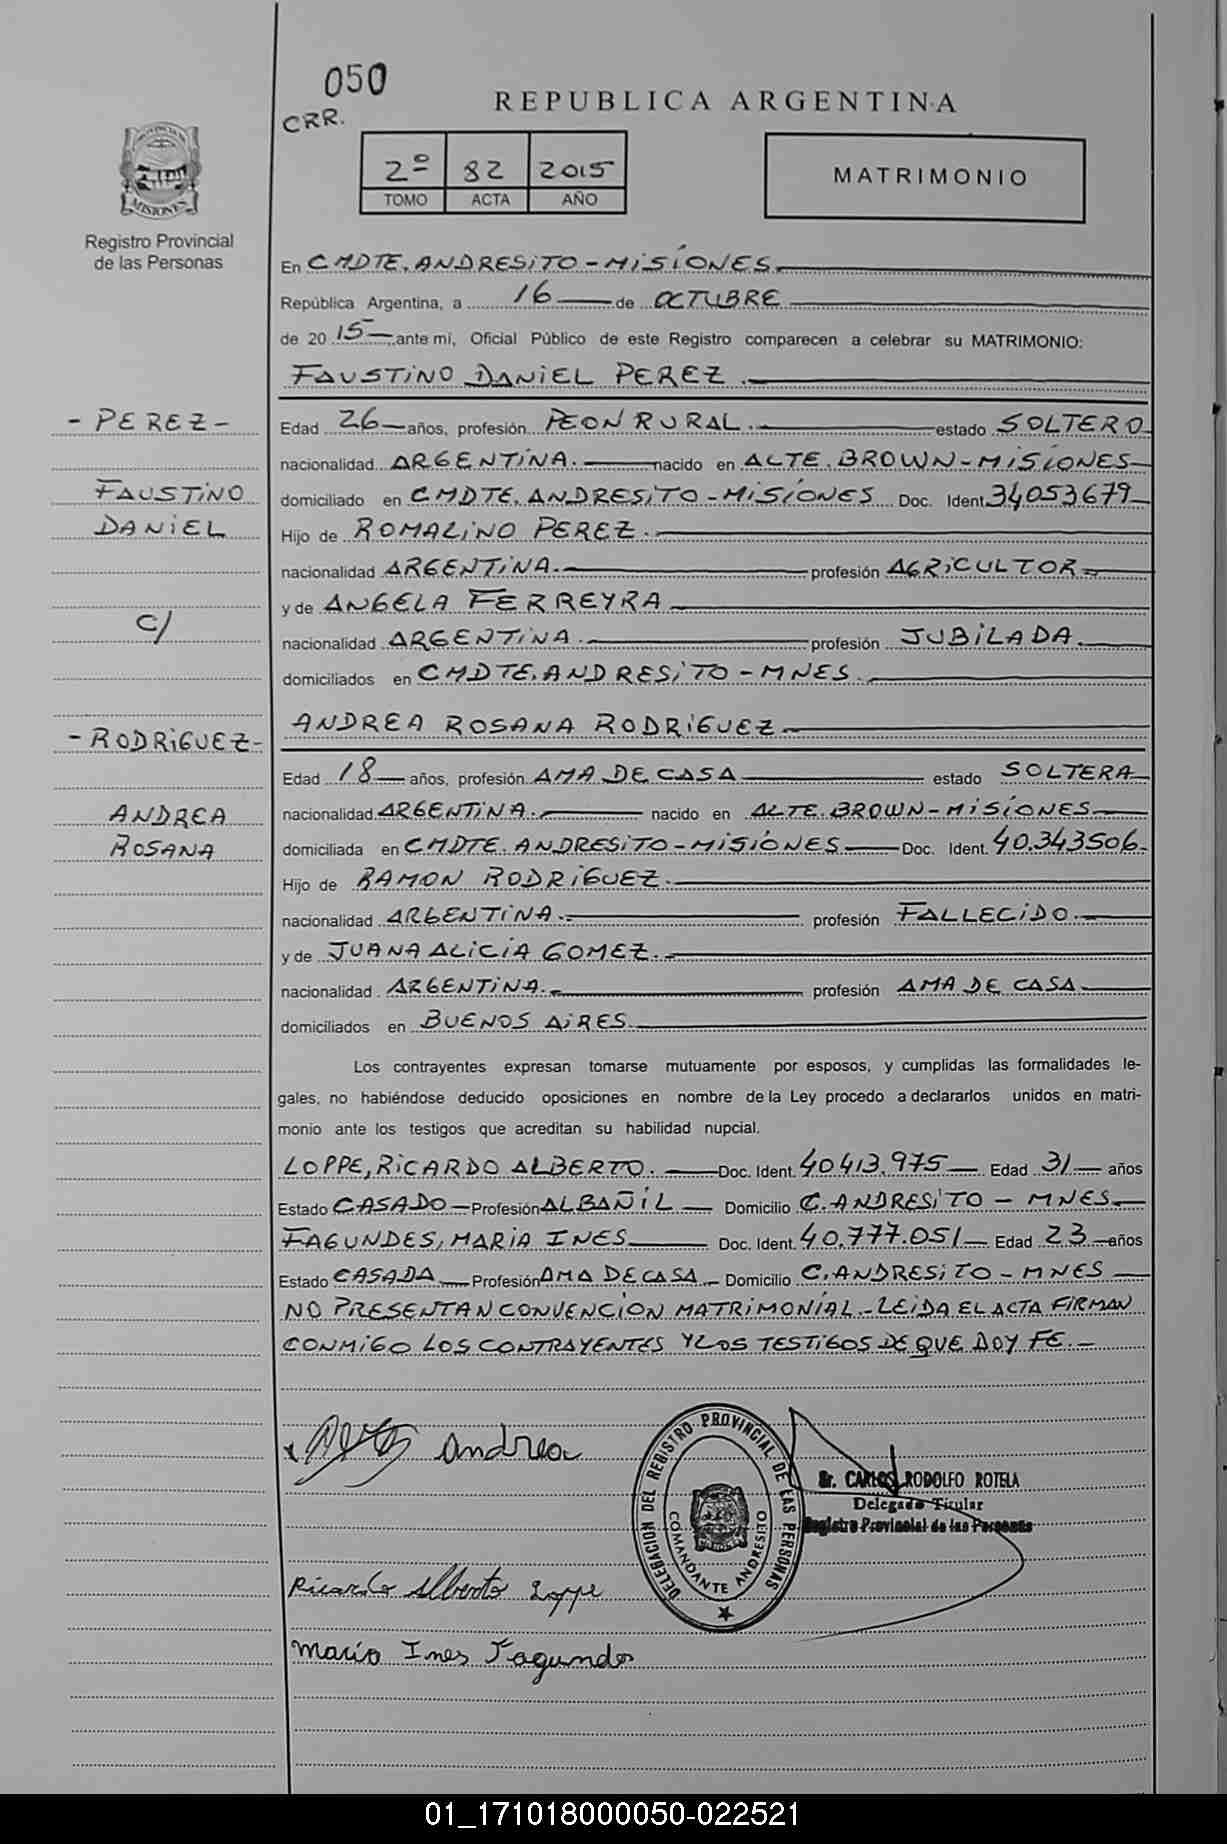 050
CRR.
REPUBLICA ARGENTINA
2º 82 2015
TOMO ACTA AÑO
MATRIMONIO
PROVINCIA
MISIONES
Registro Provincial
de las Personas
En CMDTE. ANDRESITO - MISIONES
República Argentina, a 16 de OCTUBRE
de 20 15 ante mí, Oficial Público de este Registro comparecen a celebrar su MATRIMONIO:
FAUSTINO DANIEL PEREZ.
- PEREZ -
FAUSTINO
DANIEL
C/
- RODRIGUEZ -
ANDREA
ROSANA
Edad 26 años, profesión PEON RURAL. estado SOLTERO
nacionalidad ARGENTINA. nacido en ALTE. BROWN - MISIONES
domiciliado en CMDTE. ANDRESITO - MISIONES Doc. Ident. 34053679
Hijo de ROMALINO PEREZ.
nacionalidad ARGENTINA. profesión AGRICULTOR
y de ANGELA FERREYRA
nacionalidad ARGENTINA. profesión JUBILADA.
domiciliados en CMDTE. ANDRESITO - MNES.
ANDREA ROSANA RODRIGUEZ
Edad 18 años, profesión AMA DE CASA estado SOLTERA
nacionalidad ARGENTINA. nacido en ALTE. BROWN - MISIONES
domiciliada en CMDTE. ANDRESITO - MISIONES Doc. Ident. 40.343506
Hijo de RAMON RODRIGUEZ.
nacionalidad ARGENTINA. profesión FALLECIDO.
y de JUANA ALICIA GOMEZ.
nacionalidad ARGENTINA. profesión AMA DE CASA
domiciliados en BUENOS AIRES
Los contrayentes expresan tomarse mutuamente por esposos, y cumplidas las formalidades le-
gales, no habiéndose deducido oposiciones en nombre de la Ley procedo a declararlos unidos en matri-
monio ante los testigos que acreditan su habilidad nupcial.
LOPPE, RICARDO ALBERTO. Doc. Ident. 40413.975 Edad 31 años
Estado CASADO Profesión ALBAÑIL Domicilio C. ANDRESITO - MNES
FAGUNDES, MARIA INES Doc. Ident. 40.777.051 Edad 23 años
Estado CASADA Profesión AMA DE CASA Domicilio C. ANDRESITO - MNES
NO PRESENTAN CONVENCION MATRIMONIAL.- LEIDA EL ACTA FIRMAN
CONMIGO LOS CONTRAYENTES Y LOS TESTIGOS DE QUE DOY FE.-
Andrea
DELEGACION DEL REGISTRO PROVINCIAL DE LAS PERSONAS
COMANDANTE ANDRESITO
Sr. CARLOS RODOLFO ROTELA
Delegado Titular
Registro Provincial de las Personas
Ricardo Alberto Loppe
Maria Ines Fagundes
01_171018000050-022521